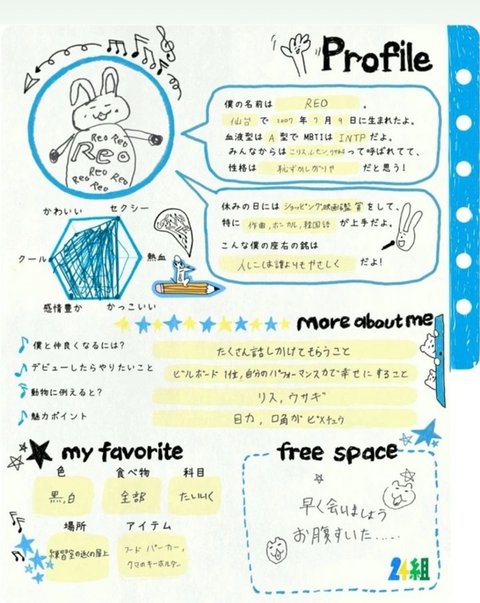 Profile
Reo Reo
Reo
Reo Reo
Reo Reo
Reo
僕の名前は REO 。
仙台 で 2007 年 7 月 9 日に生まれたよ。
血液型は A 型で MBTIは INTP だよ。
みんなからは こリス,ふたん,りすみ って呼ばれてて、
性格は 恥ずかしがりや だと思う!
休みの日には ショッピング,映画鑑賞 をして、
特に 作曲,ボーカル,韓国語 が上手だよ。
こんな僕の座右の銘は
人にには誰よりもやさしく だよ!
かわいい
セクシー
クール
熱血
感情豊か
かっこいい
more about me
僕と仲良くなるには? たくさん話しかけてもらうこと
デビューしたらやりたいこと ビルボード 1位,自分のパフォーマンス力で幸せにすること
動物に例えると? リス,ウサギ
魅力ポイント 目力,口角が ピ
my favorite
色
黒,白
食べ物
全部
科目
たいいく
場所
練習室の近くの屋上
アイテム
フードパーカー,
クマのキーホルダー
free space
早く会いましょう
お腹すいた.....
24組